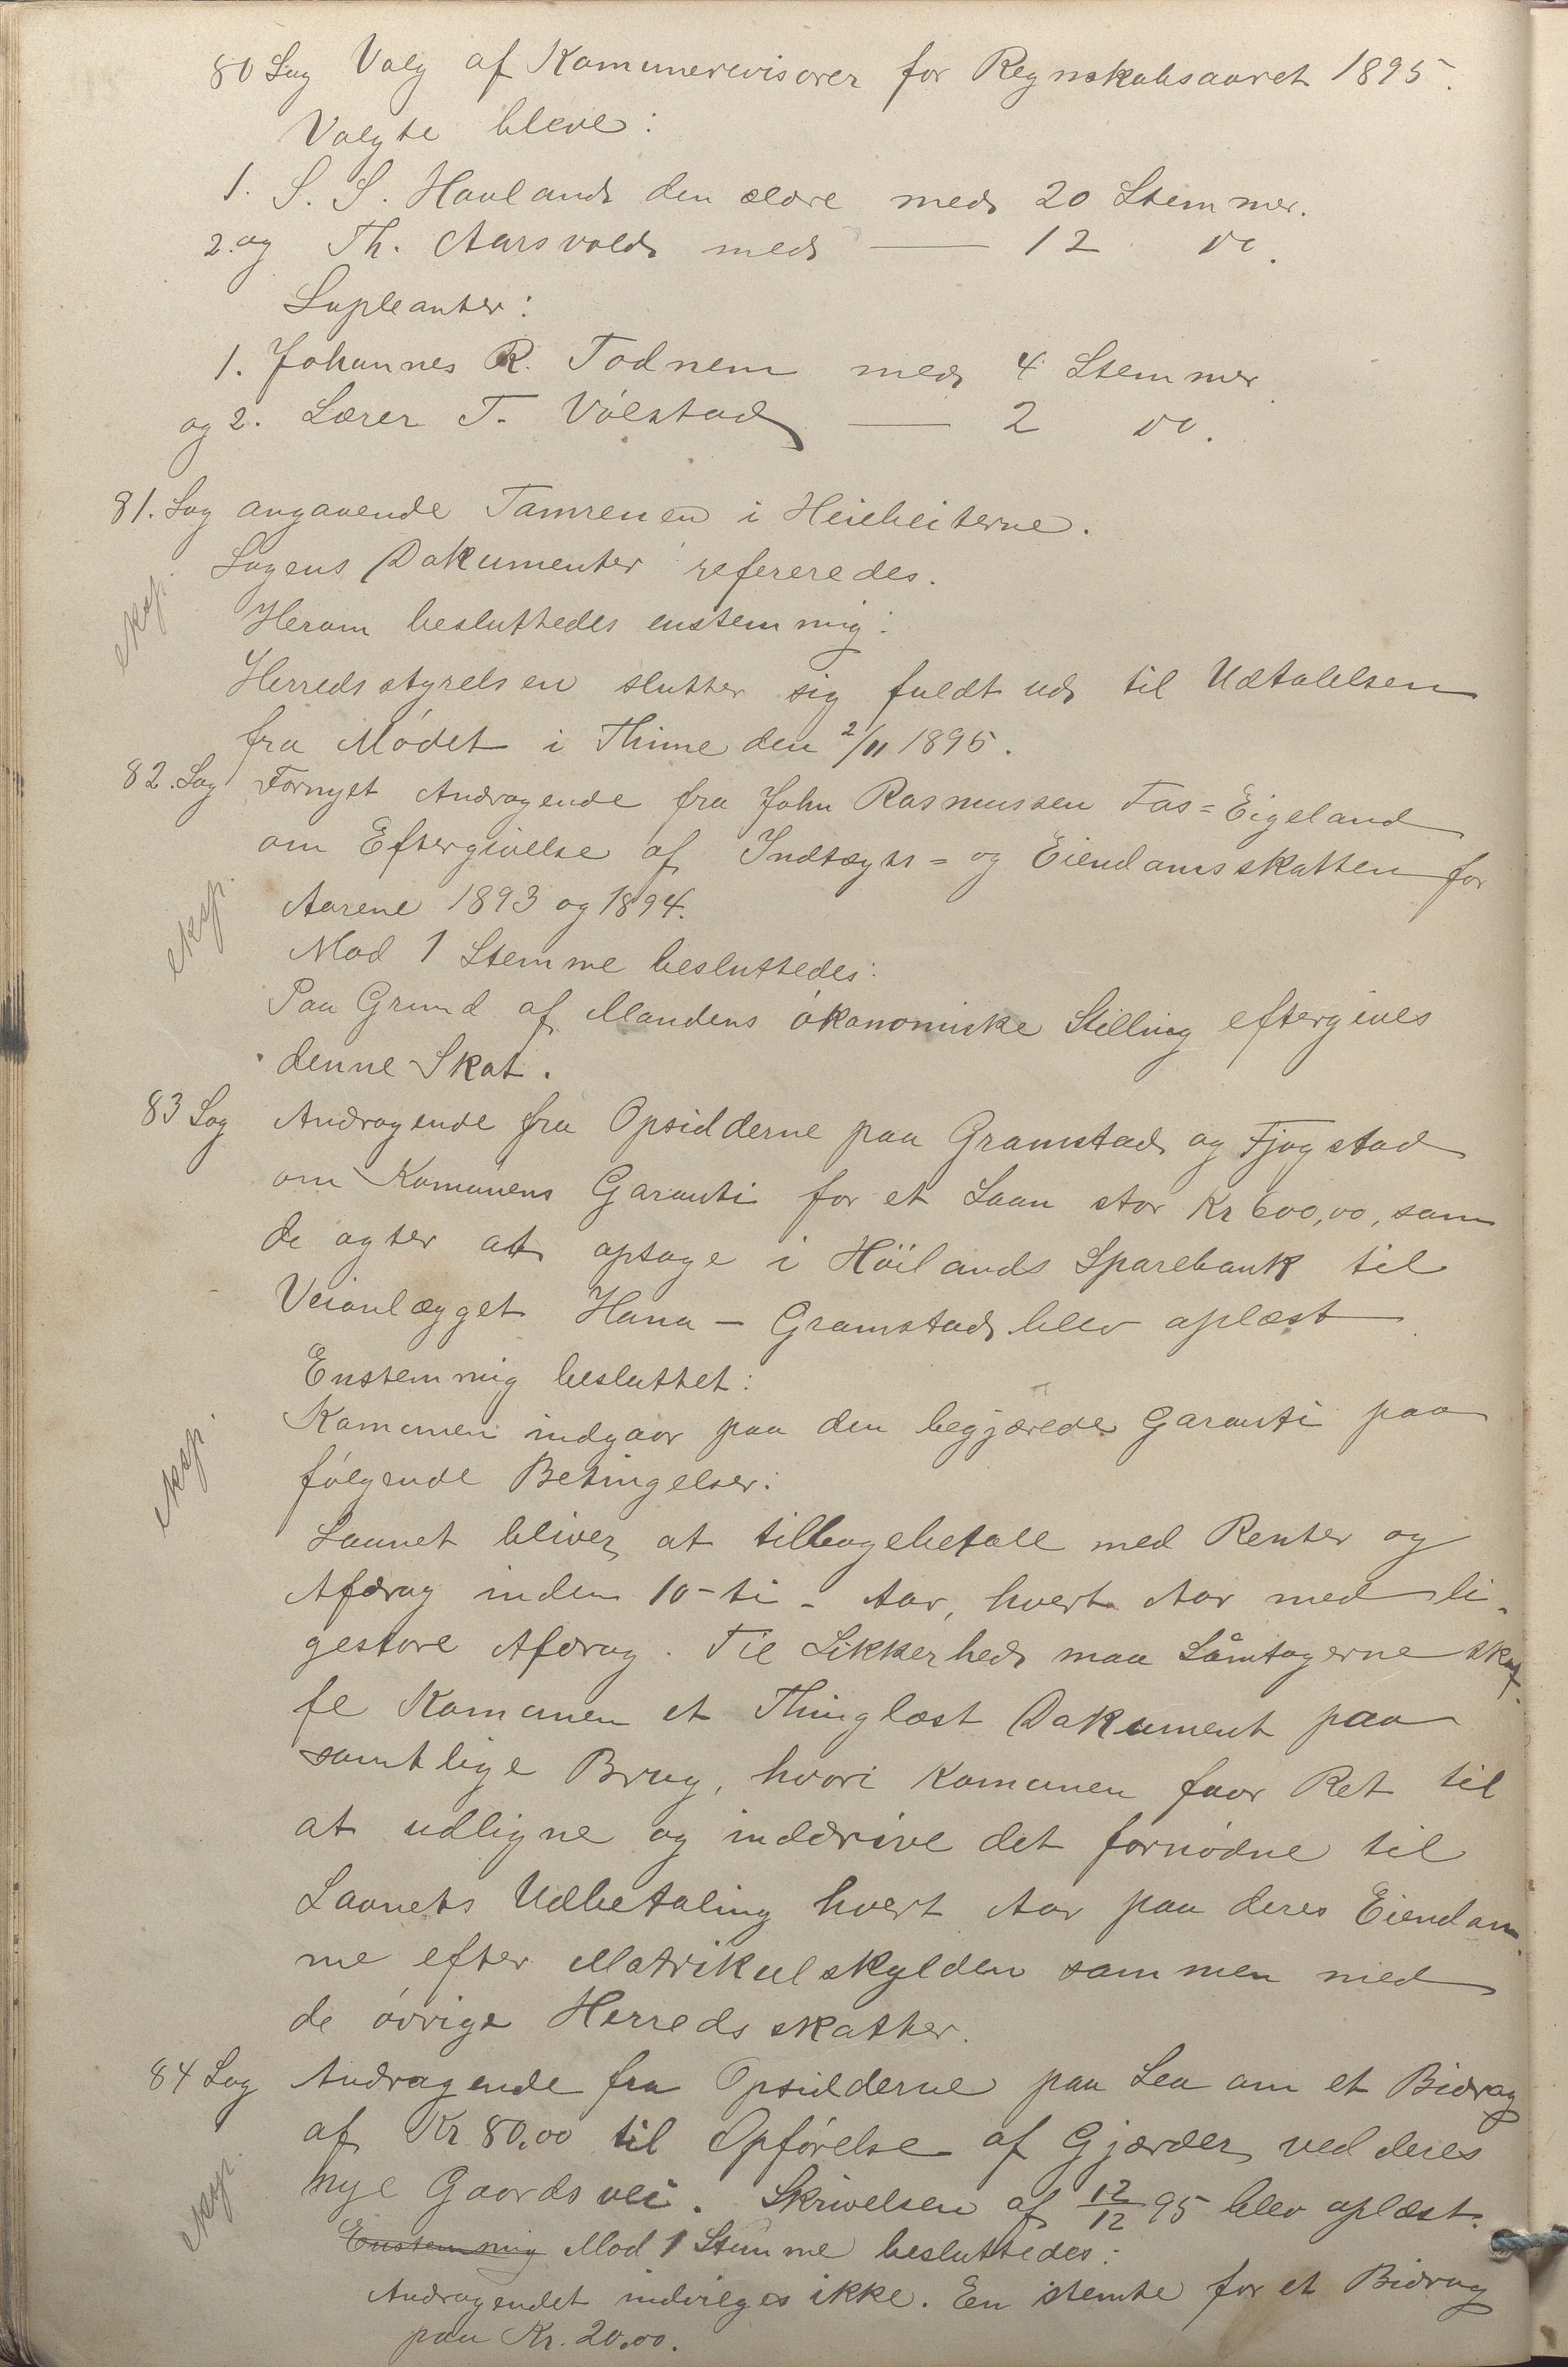 80 Sag Valg af Komunerevisorer for Regnskabsaaret 1895.
Valgte bleve:
1. S. S. Hauland den ældre med 20 Stemmer.
2. og Th. Aarsvold med — 12 do.
Supleanter:
1. Johannes R. Todnem med 4 Stemmer
og 2. Lærer T. Vølstad — 2 do.
81. Sag angaaende Tamrenen i Heiebeiterne.
Sagens Dokumenter refereredes.
eksp.
Herom besluttedes enstemmig:
Herredsstyrelsen slutter sig fuldt ud til Udtalelsen
fra Mødet i Thime den 2/11 1895.
82. Sag Fornyet Andragende fra John Rasmussen Fos=Eigeland
om Eftergivelse af Indtægts= og Eiendomsskatten for
eksp.
Aarene 1893 og 1894.
Mod 1 Stemme besluttedes:
Paa Grund af Mandens økonomiske Stilling eftergives
denne Skat.
83 Sag Andragende fra Opsidderne paa Gramstad og Fjogstad
om Komunens Garanti for et Laan stor Kr 600,00, som
de agter at optage i Höilands Sparebank til
Veianlægget Hana – Gramstad blev oplæst
Enstemmig besluttet:
Komunen indgaar paa den begjærede Garanti paa
eksp.
følgende Betingelser:
Laanet bliver at tilbagebetale med Renter og
Afdrag inden 10 - ti - Aar, hvert Aar med li-
gestore Afdrag. Til Sikkerhed maa Låntagerne skaf-
fe Komunen et Thinglæst Dokument paa
samtlige Brug, hvori Komunen faar Ret til
at udligne og inddrive det fornødne til
Laanets Udbetaling hvert Aar paa deres Eiendom-
me efter Matrikulskylden sammen med
de øvrige Herredsskatter.
84 Sag Andragende fra Opsidderne paa Lea om et Bidrag
af Kr 80,00 til Opførelse af Gjærder ved deres
eksp.
nye Gaardsvei. Skrivelsen af 12/12 95 blev oplæst.
Enstemmig Mod 1 Stemme besluttedes:
Andragendet indvilges ikke. En stemte for et Bidrag
paa Kr. 20,00.